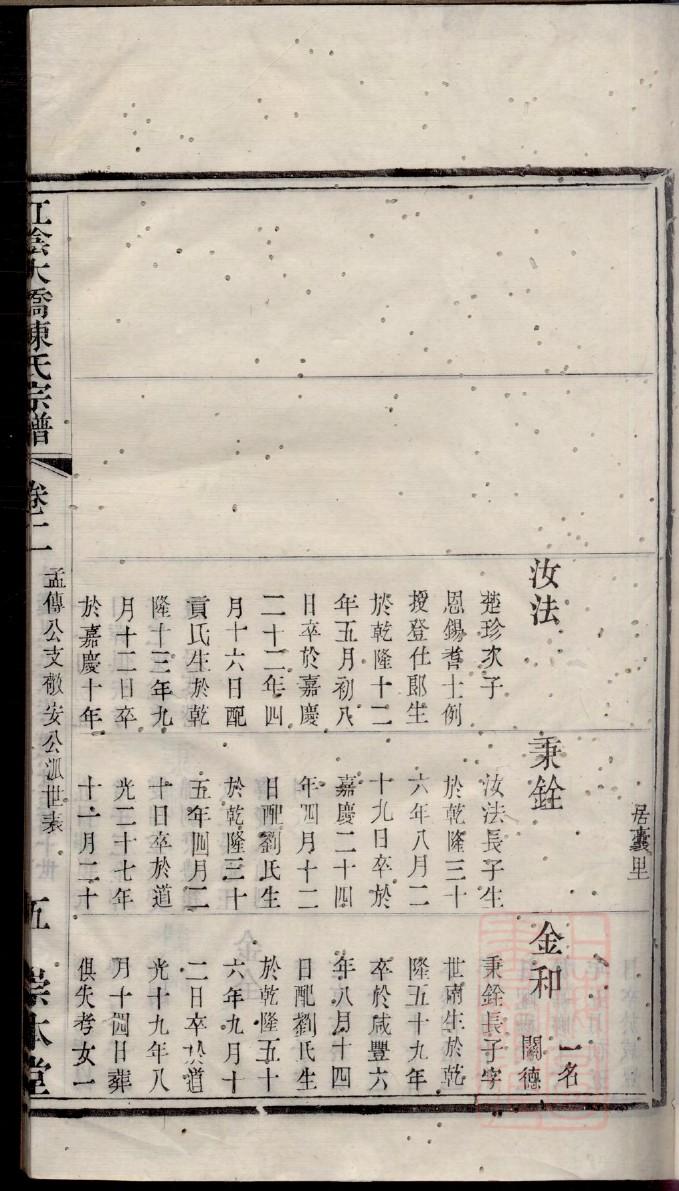 居襄里
汝法
楚珍次子
恩錫耆士例
授登仕郎生
於乾隆十二
年五月初八
日卒於嘉慶
二十二年四
月十六日配
貢氏生於乾
隆十三年九
月十二日卒
於嘉慶十年
秉銓
汝法長子生
於乾隆三十
六年八月二
十九日卒於
嘉慶二十四
年四月十二
日配劉氏生
於乾隆三十
五年四月二
十日卒於道
光二十七年
十一月二十
金和
一名
關德
秉銓長子字
世南生於乾
隆五十九年
卒於咸豐六
年八月十四
日配劉氏生
於乾隆五十
六年九月十
二日卒於道
光十九年八
月十四日葬
俱失考女一
江陰大橋陳氏宗譜
卷二
孟傳公支敬安公派世表
五
崇本堂